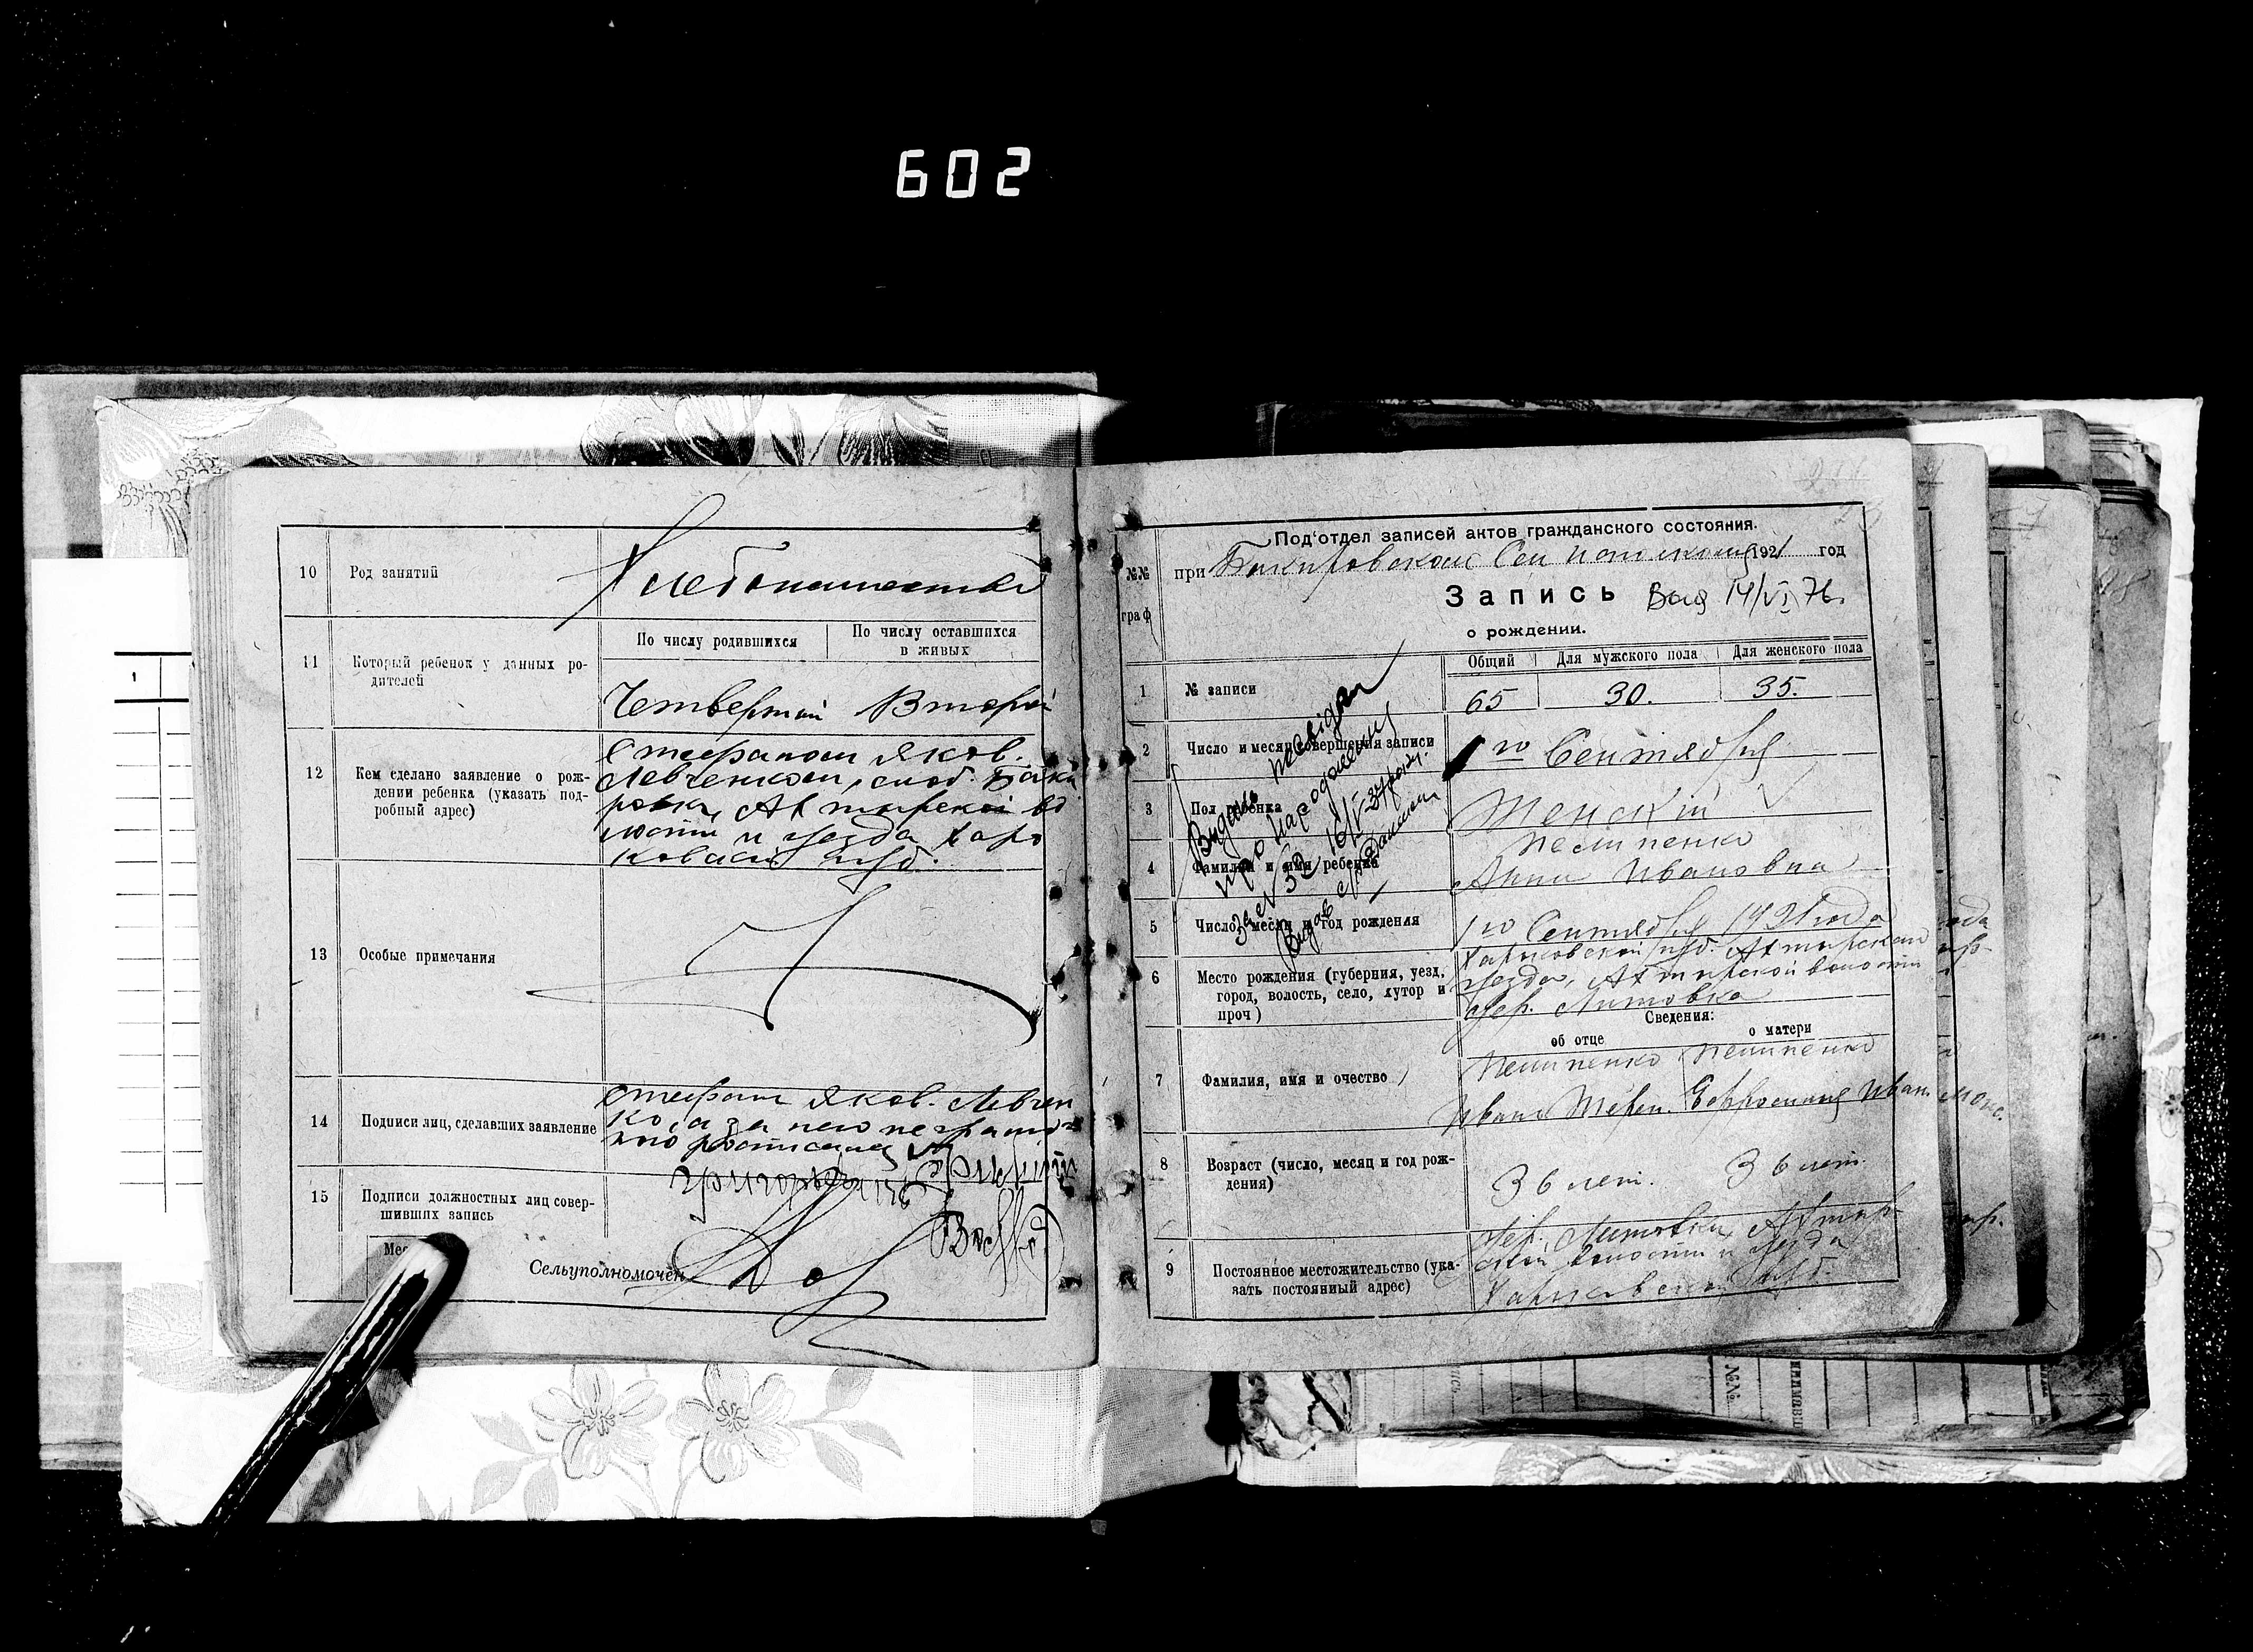 602
10 Род занятий Хлебопашество
11 Который ребенок у данных ро-
дителей
По числу родившихся По числу оставшихся
в живых
Четвертый Второй
12 Кем сделано заявление о рож-
дении ребенка (указать под-
робный адрес)
Стефаном Яков.
Левченком, слоб. Баки
ровки, Ахтырской во
лости и уезда Харь
ковской губ.
13 Особые примечания
14 Подписи лиц, сделавших заявление
Стефан Яков. Левчен
ко, а за него неграмот
ного росписался
15 Подписи должностных лиц совер-
шивших запись
Сельуполномочен
Под'отдел записей актов гражданского состояния.
№№
граф
при Бакировском Сел 1921 год
Запись Выд 14/VI 76.
о рождении.
Общий Для мужского пола Для женского пола
1 № записи 65 30. 35.
2 Число и месяц совершения записи 1го Сентября
3 Пол ребенка Женский
4 Фамилия и имя ребенка
Анна Ивановна
5 Число, месяц и год рождения 1го Сентября 1921 года
6 Место рождения (губерния, уезд,
город, волость, село, хутор и
проч)
Харьковской губ. Ахтырскаго
уезда, Ахтырской волости
дер. Литовка
Сведения:
об отце о матери
7 Фамилия, имя и очество
Иван Терен. Ефросиния Иван.
8 Возраст (число, месяц и год рож-
дения)
36 лет. 36 лет.
9 Постоянное местожительство (ука-
зать постоянный адрес)
дер. Литовки, Ахтыр
ской волости и уезда
Харьковской губ.
Видано
про народження
за № 52 16/V
Видав